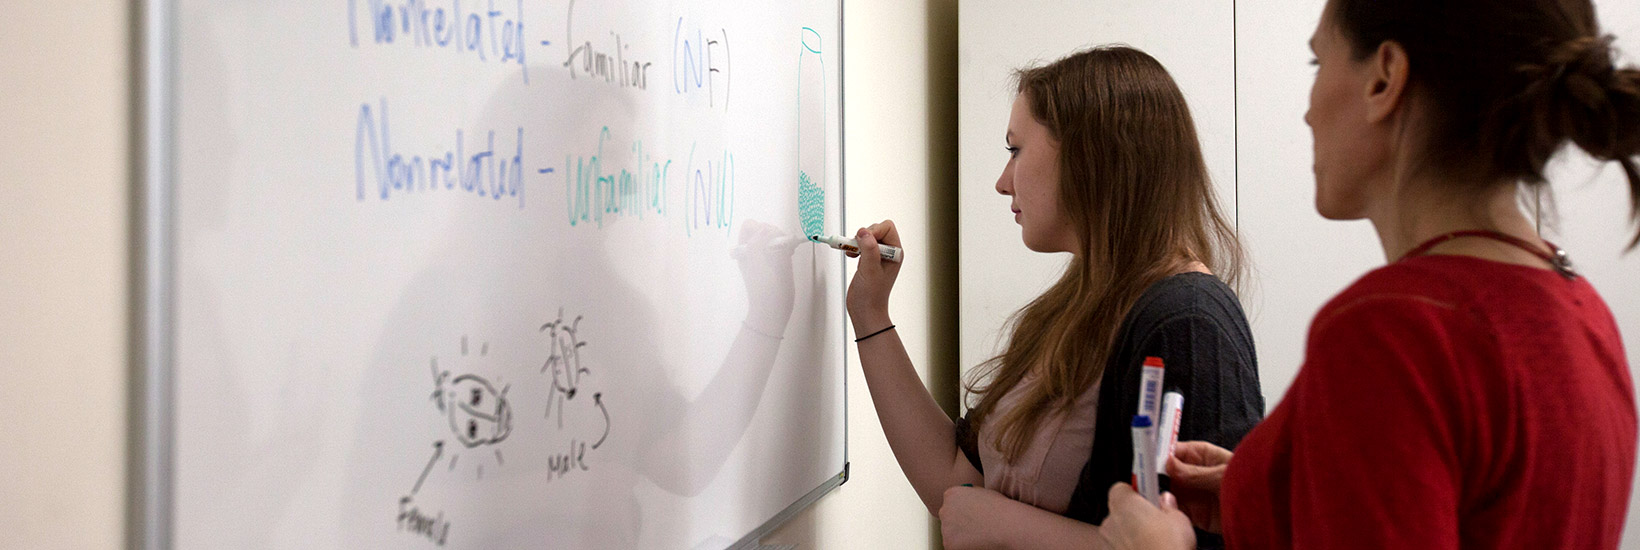 Nonrelated - familiar (NF)
Nonrelated - unfamiliar (NU)
Male
Female